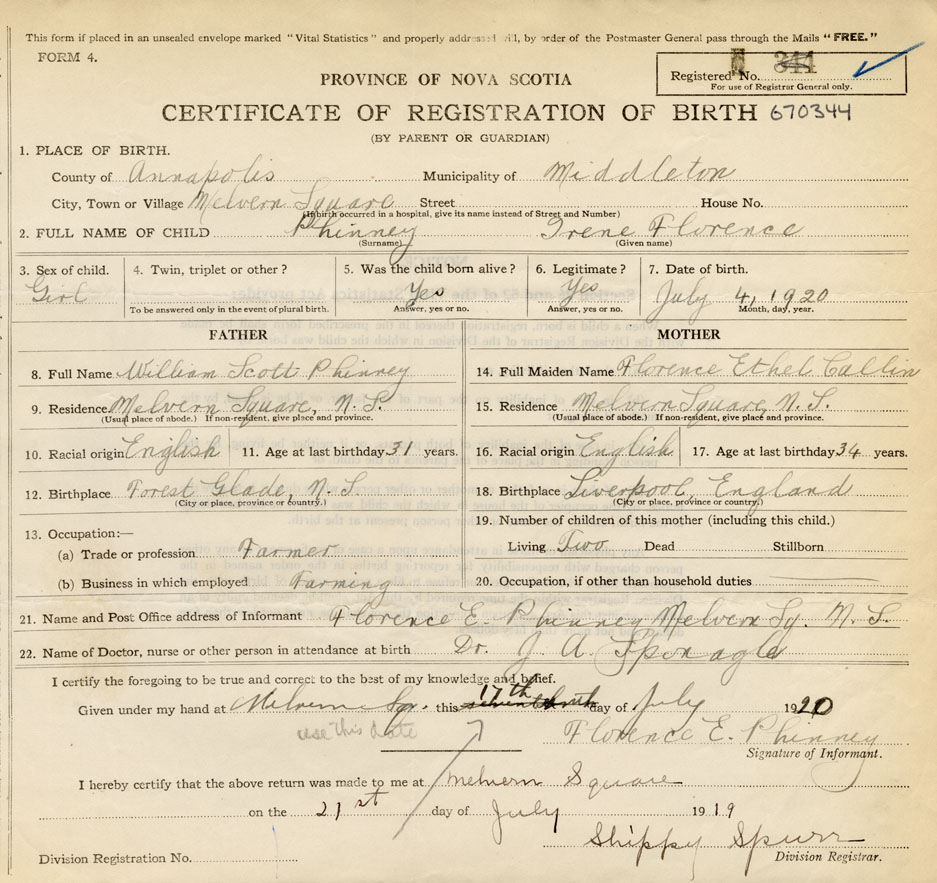 This form if placed in an unsealed envelope marked "Vital Statistics" and properly addressed will, by order of the Postmaster General pass through the Mails "FREE."
FORM 4.
Registered No. 344
For use of Registrar General only.
PROVINCE OF NOVA SCOTIA
CERTIFICATE OF REGISTRATION OF BIRTH 670344
(BY PARENT OR GUARDIAN)
1. PLACE OF BIRTH.
County of Annapolis Municipality of Middleton
City, Town or Village Melvern Square Street House No.
(If birth occurred in a hospital, give its name instead of Street and Number)
2. FULL NAME OF CHILD Phinney Irene Florence
(Surname) (Given name)
3. Sex of child. 4. Twin, triplet or other? 5. Was the child born alive? 6. Legitimate? 7. Date of birth.
Girl Yes Yes July 4, 1920
To be answered only in the event of plural birth. Answer, yes or no. Answer, yes or no. Month, day, year.
FATHER MOTHER
8. Full Name William Scott Phinney 14. Full Maiden Name Florence Ethel Callin
9. Residence Melvern Square, N.S. 15. Residence Melvern Square, N.S.
(Usual place of abode.) If non-resident, give place and province. (Usual place of abode.) If non-resident, give place and province.
10. Racial origin English 11. Age at last birthday 31 years. 16. Racial origin English 17. Age at last birthday 34 years.
12. Birthplace Forest Glade, N.S. 18. Birthplace Liverpool, England
(City or place, province or country.) (City or place, province or country.)
13. Occupation:— 19. Number of children of this mother (including this child.)
(a) Trade or profession Farmer Living Two Dead Stillborn
(b) Business in which employed Farming 20. Occupation, if other than household duties
21. Name and Post Office address of Informant Florence E. Phinney Melvern Sq. N.S.
22. Name of Doctor, nurse or other person in attendance at birth Dr. J. A. Sponagle
I certify the foregoing to be true and correct to the best of my knowledge and belief.
Given under my hand at Melvern Sq. this 17th day of July 1920
use this date
Florence E. Phinney
Signature of Informant.
I hereby certify that the above return was made to me at Melvern Square
on the 21st day of July 1919
Shippy Spurr
Division Registration No. Division Registrar.